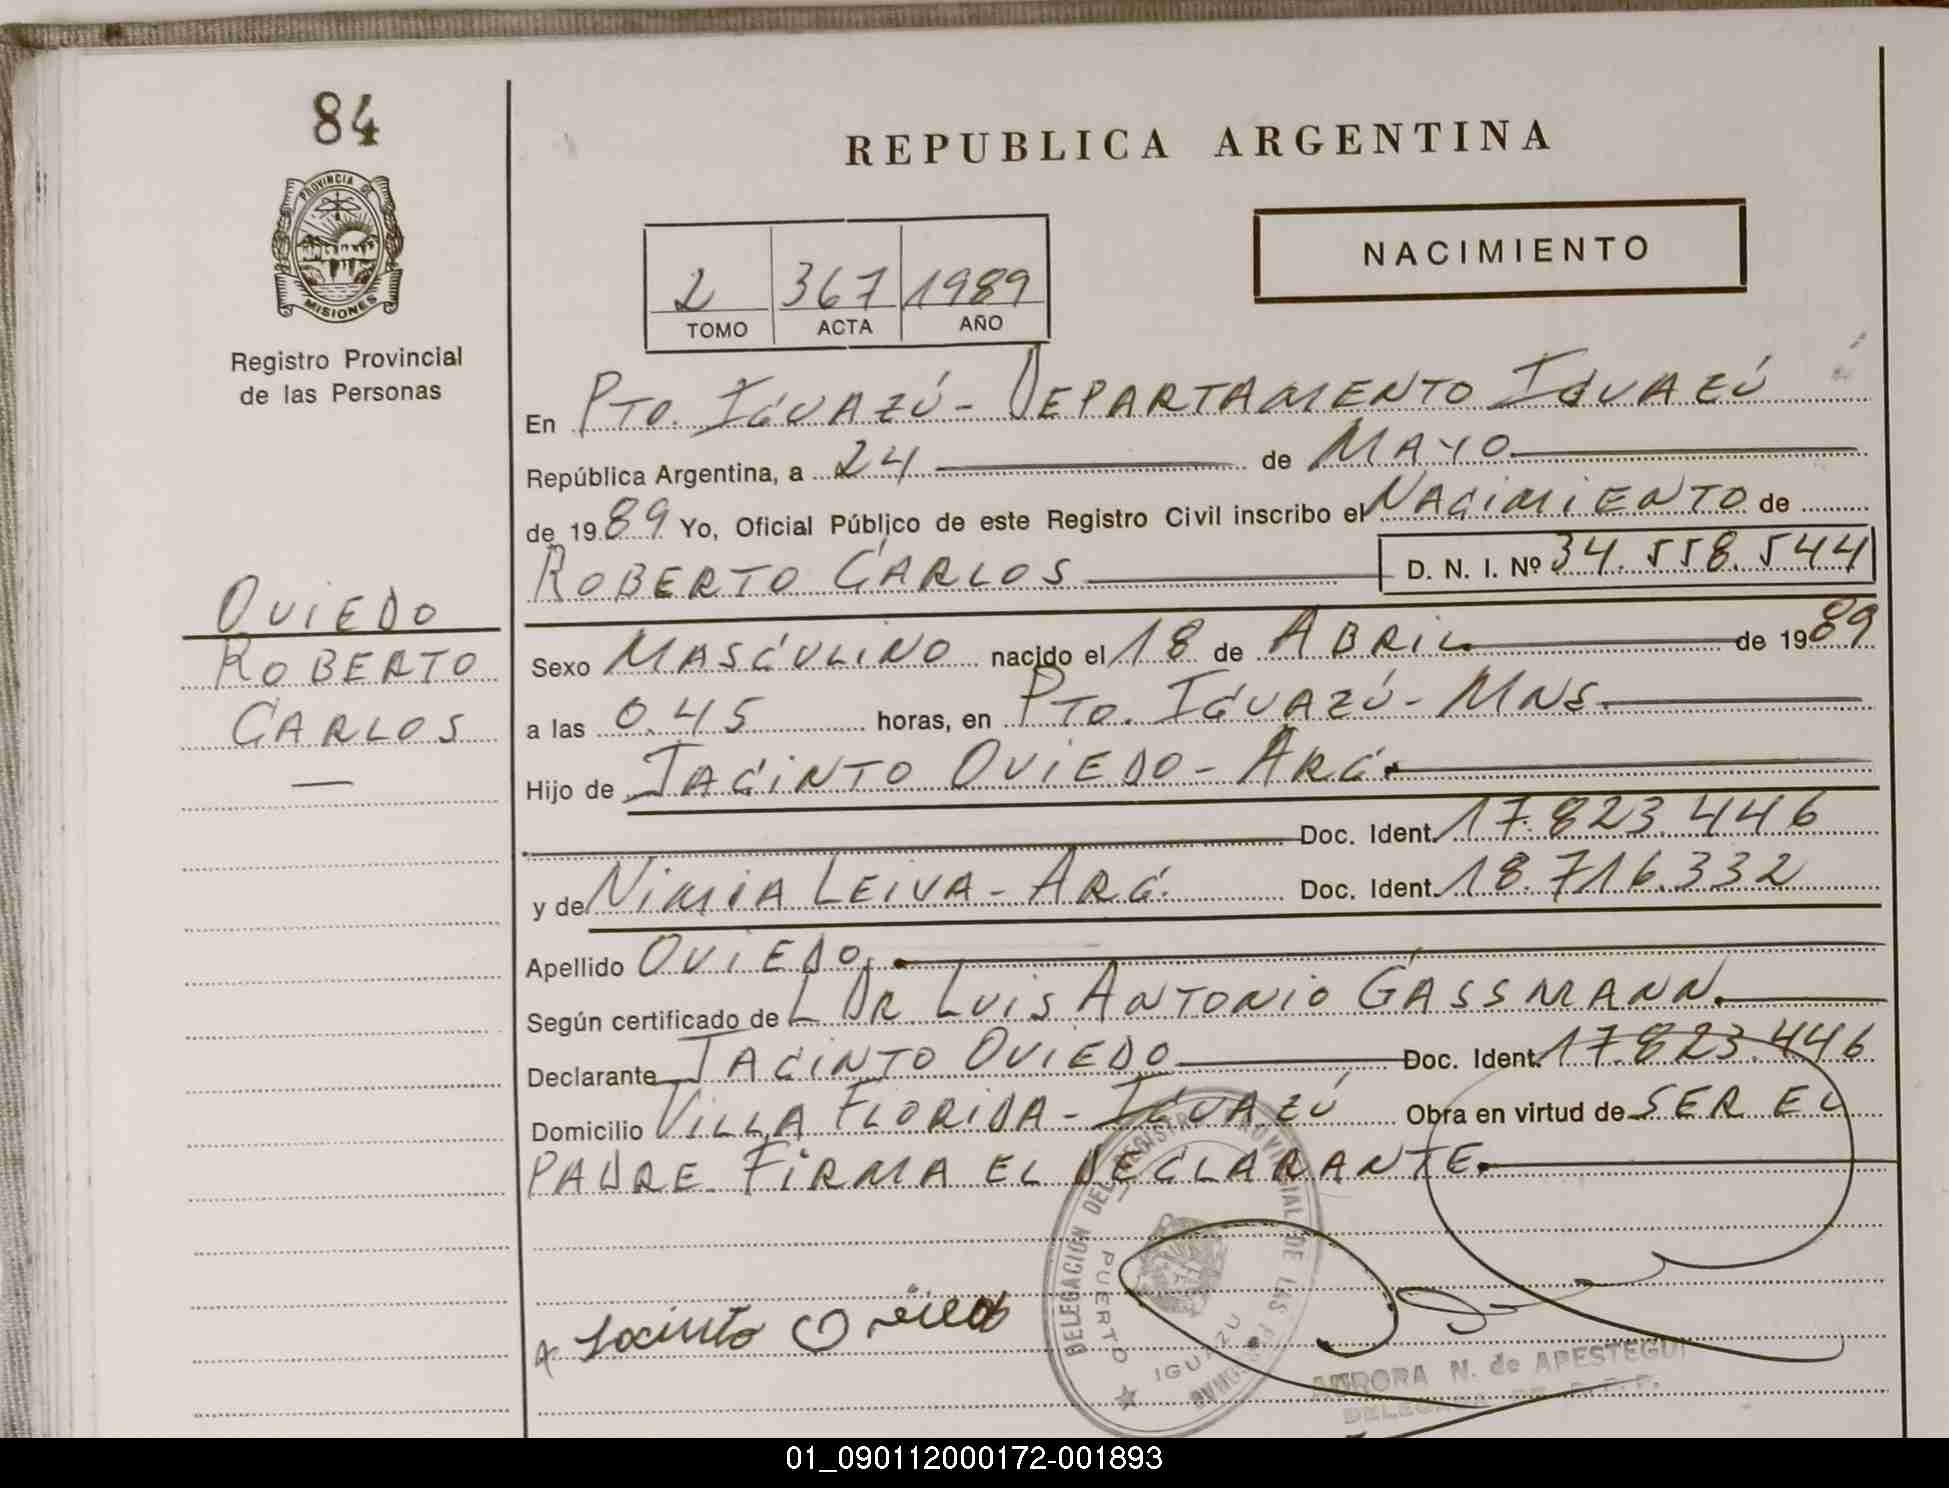 84
PROVINCIA DE
MISIONES
Registro Provincial
de las Personas
OVIEDO
ROBERTO
CARLOS
REPUBLICA ARGENTINA
NACIMIENTO
2 367 1989
TOMO ACTA AÑO
En PTO. IGUAZÚ - DEPARTAMENTO IGUAZÚ
República Argentina, a 24 de MAYO
de 1989 Yo, Oficial Público de este Registro Civil inscribo el NACIMIENTO de
ROBERTO CARLOS D. N. I. Nº 34.558.544
Sexo MASCULINO nacido el 18 de ABRIL de 1989
a las 0.45 horas, en PTO. IGUAZÚ - MNS.
Hijo de JACINTO OVIEDO - ARG.
Doc. Ident. 17.823.446
y de NIMIA LEIVA - ARG. Doc. Ident. 18.716.332
Apellido OVIEDO
Según certificado de L DR LUIS ANTONIO GASSMANN.
Declarante JACINTO OVIEDO Doc. Ident. 17.823.446
Domicilio VILLA FLORIDA - IGUAZÚ Obra en virtud de SER EL
PADRE FIRMA EL DECLARANTE.
Jacinto Oviedo
DELEGACION DEL REGISTRO PROVINCIAL DE LAS PERSONAS
PUERTO IGUAZU
AURORA N. de APESTEGUI
01_090112000172-001893